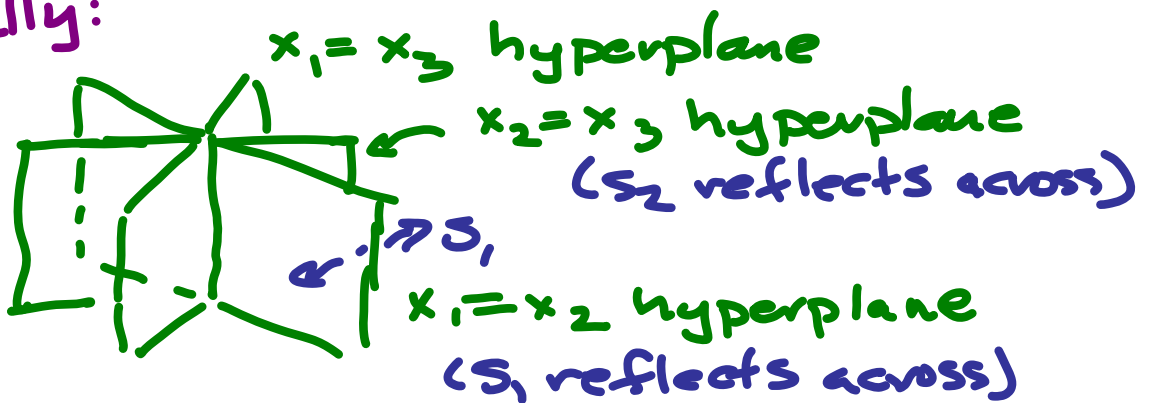 lly:
x₁ = x₃ hyperplane
x₂ = x₃ hyperplane
(s₂ reflects across)
s₁
x₁ = x₂ hyperplane
(s₁ reflects across)